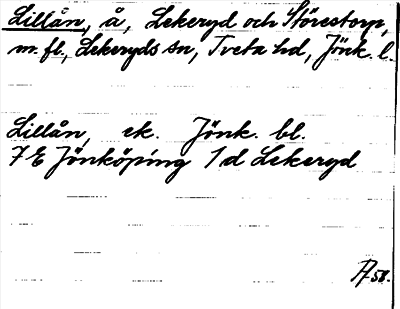 Lillån, å, Lekeryd och Störestorp,
m. fl., Lekeryds sn, Tveta hd, Jönk. l.
Lillån, ek. Jönk. bl.
7 E Jönköping 1 d Lekeryd
58.